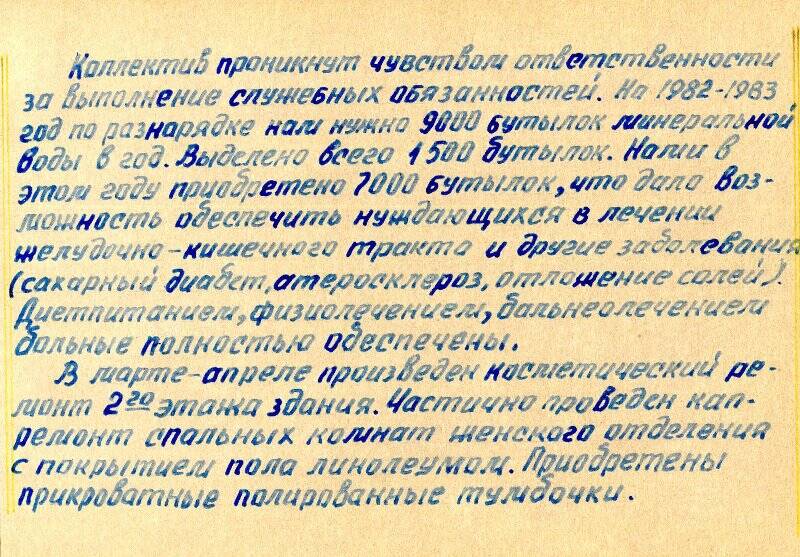 Коллектив проникнут чувством ответственности
за выполнение служебных обязанностей. На 1982-1983
год по разнарядке нам нужно 9000 бутылок минеральной
воды в год. Выделено всего 1500 бутылок. Нами в
этом году приобретено 7000 бутылок, что дало воз-
можность обеспечить нуждающихся в лечении
желудочно-кишечного тракта и другие заболевания
(сахарный диабет, атеросклероз, отложение солей).
Диетпитанием, физиолечением, бальнеолечением
больные полностью обеспечены.
В марте-апреле произведен косметический ре-
монт 2го этажа здания. Частично проведен кап-
ремонт спальных комнат женского отделения
с покрытием пола линолеумом. Приобретены
прикроватные полированные тумбочки.